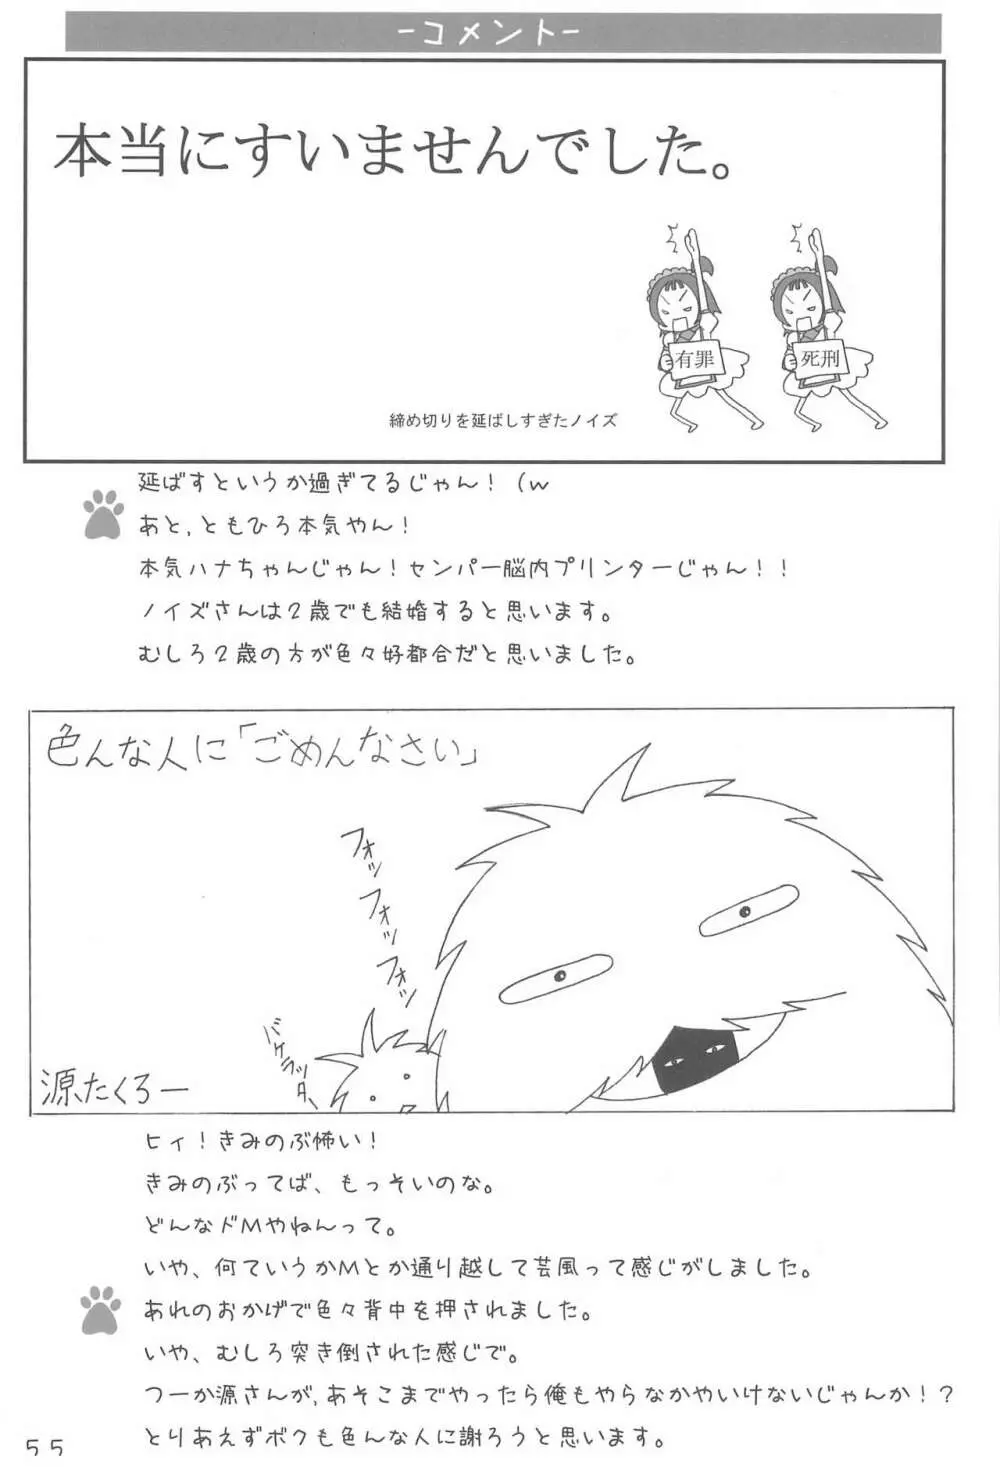 -コメント-
本当にすいませんでした。
有罪
死刑
締め切りを延ばしすぎたノイズ
延ばすというか過ぎてるじゃん!(w
あと,ともひろ本気やん!
本気ハナちゃんじゃん!センパー脳内プリンターじゃん!!
ノイズさんは2歳でも結婚すると思います。
むしろ2歳の方が色々好都合だと思いました。
色んな人に「ごめんなさい」
フォッ
フォッ
フォッ
バケラッタ、
源たくろー
ヒィ!きみのぶ怖い!
きみのぶってば、もっそいのな。
どんなドMやねんって。
いや、何ていうかMとか通り越して芸風って感じがしました。
あれのおかげで色々背中を押されました。
いや、むしろ突き倒された感じで。
つーか源さんが,あそこまでやったら俺もやらなかやいけないじゃんか!?
とりあえずボクも色んな人に謝ろうと思います。
55